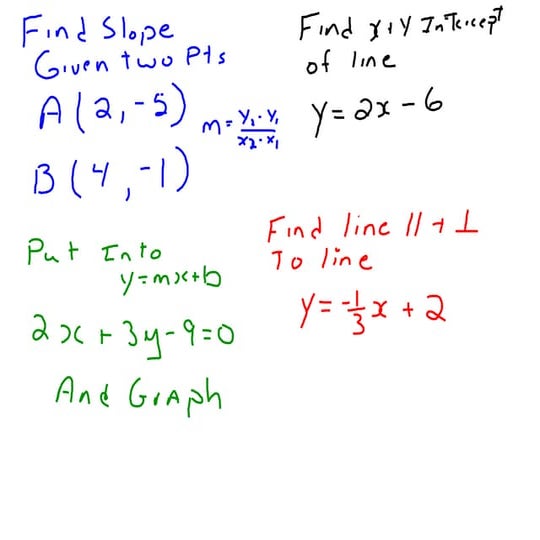 Find Slope
Given two Pts
A(2,-5)
m = y₁-y₁/x₂-x₁
B(4,-1)
Find x+y Intercept
of line
y = 2x - 6
Put Into
y=mx+b
2x + 3y - 9 = 0
And Graph
Find line || + ⊥
To line
y = -1/3 x + 2